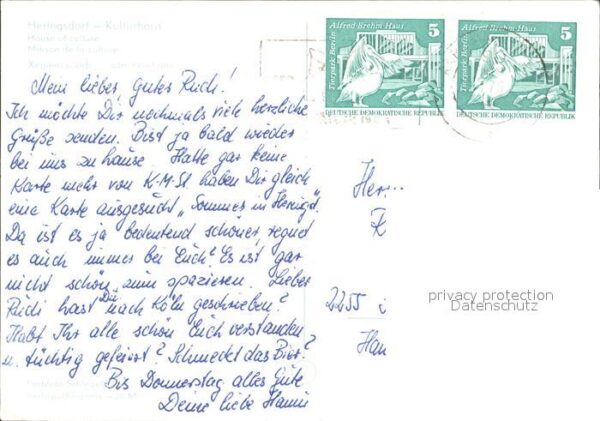 Heringsdorf – Kulturhaus
House of culture
Maison de la culture
Mein lieber, guter Rudi!
Ich möchte Dir nochmals viele herzliche
Grüße senden. Bist ja bald wieder
bei uns zu hause. Hatte gar keine
Karte mehr von K-M-St. haben Dir gleich
eine Karte ausgesucht „Sommer in Heringsd."
Da ist es ja bedeutend schöner, regnet
es auch immer bei Euch? Es ist gar
nicht schön zum spazieren. Lieber
Rudi hast Du nach Köln geschrieben?
Habt Ihr alle schön Euch verstanden
u. tüchtig gefeiert? Schmeckt das Bier?
Bis Donnerstag alles Gute
Deine liebe Hanni
Tierpark Berlin
Alfred-Brehm-Haus
5
DEUTSCHE DEMOKRATISCHE REPUBLIK
Tierpark Berlin
Alfred-Brehm-Haus
5
DEUTSCHE DEMOKRATISCHE REPUBLIK
Herr
2255
privacy protection
Datenschutz